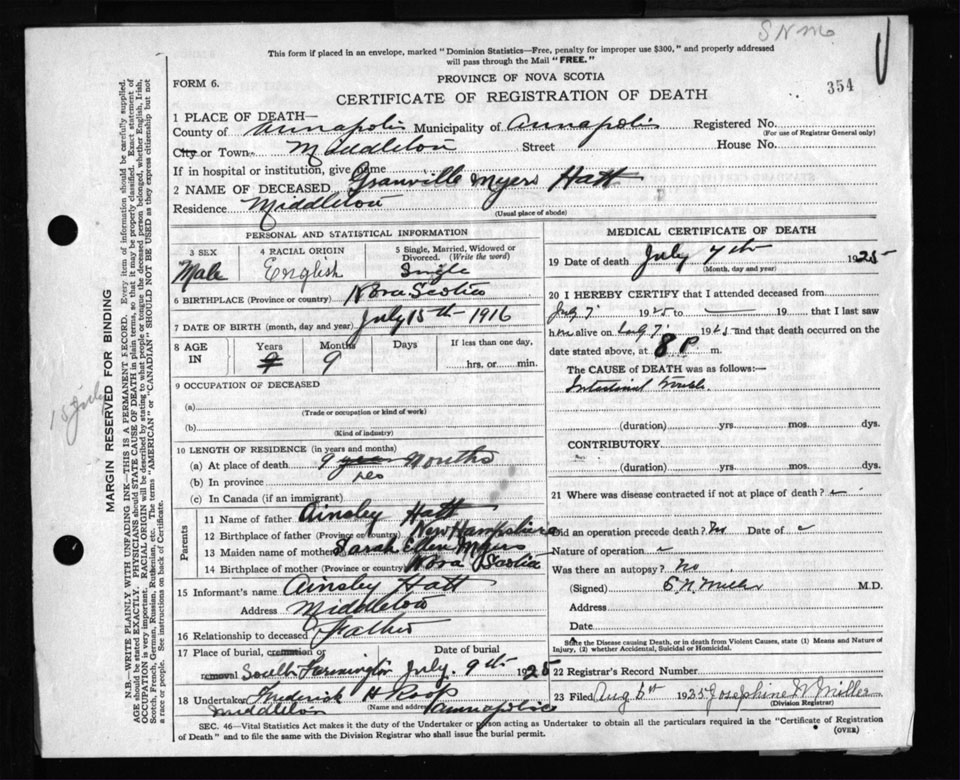 SNMb
This form if placed in an envelope, marked "Dominion Statistics—Free, penalty for improper use $300," and properly addressed
will pass through the Mail "FREE."
FORM 6.
PROVINCE OF NOVA SCOTIA
354
CERTIFICATE OF REGISTRATION OF DEATH
1 PLACE OF DEATH—
County of Annapolis Municipality of Annapolis Registered No.
(For use of Registrar General only)
City or Town Middleton Street House No.
If in hospital or institution, give name
2 NAME OF DECEASED Granville Myers Hatt
Residence Middleton
(Usual place of abode)
PERSONAL AND STATISTICAL INFORMATION
3 SEX 4 RACIAL ORIGIN 5 Single, Married, Widowed or Divorced. (Write the word)
Male English Single
6 BIRTHPLACE (Province or country) Nova Scotia
7 DATE OF BIRTH (month, day and year) July 15th 1916
8 AGE IN Years Months Days If less than one day,
9 9 hrs. or min.
9 OCCUPATION OF DECEASED
(a)
(Trade or occupation or kind of work)
(b)
(Kind of industry)
10 LENGTH OF RESIDENCE (in years and months)
(a) At place of death 9 years Months
(b) In province
(c) In Canada (if an immigrant)
Parents
11 Name of father Ainsley Hatt
12 Birthplace of father (Province or country) New Hampshire
13 Maiden name of mother Sarah Myers
14 Birthplace of mother (Province or country) Nova Scotia
15 Informant's name Ainsley Hatt
Address Middleton
16 Relationship to deceased Father
17 Place of burial, cremation or removal Date of burial
South Farmington July. 9th 1925
18 Undertaker Frederick H Roop
Middleton (Name and address) Annapolis
MEDICAL CERTIFICATE OF DEATH
19 Date of death July 7th 1925
(Month, day and year)
20 I HEREBY CERTIFY that I attended deceased from
July 7 1925 to — 19 that I last saw
him alive on July 7 1925 and that death occurred on the
date stated above, at 8 P m.
The CAUSE of DEATH was as follows:—
Intestinal
(duration) yrs. mos. dys.
CONTRIBUTORY
(duration) yrs. mos. dys.
21 Where was disease contracted if not at place of death?
Did an operation precede death? No Date of
Nature of operation
Was there an autopsy? No
(Signed) M.D.
Address
Date
State the Disease causing Death, or in death from Violent Causes, state (1) Means and Nature of
Injury, (2) whether Accidental, Suicidal or Homicidal.
22 Registrar's Record Number
23 Filed Aug 1935 Josephine Miller
(Division Registrar)
SEC. 46—Vital Statistics Act makes it the duty of the Undertaker or person acting as Undertaker to obtain all the particulars required in the "Certificate of Registration
of Death" and to file the same with the Division Registrar who shall issue the burial permit.
(OVER)
MARGIN RESERVED FOR BINDING
15 July
N.B.—WRITE PLAINLY WITH UNFADING INK—THIS IS A PERMANENT RECORD. Every item of information should be carefully supplied.
AGE should be stated EXACTLY. PHYSICIANS should STATE CAUSE OF DEATH in plain terms, so that it may be properly classified. Exact statement of
OCCUPATION is very important. RACIAL ORIGIN will be described by stating to what people or tongue the deceased person belonged, whether English, Irish,
Scotch, French, German, Russian, Ruthenian, etc. The terms "AMERICAN" or "CANADIAN" SHOULD NOT BE USED as they express citizenship but not
a race or people. See instructions on back of Certificate.